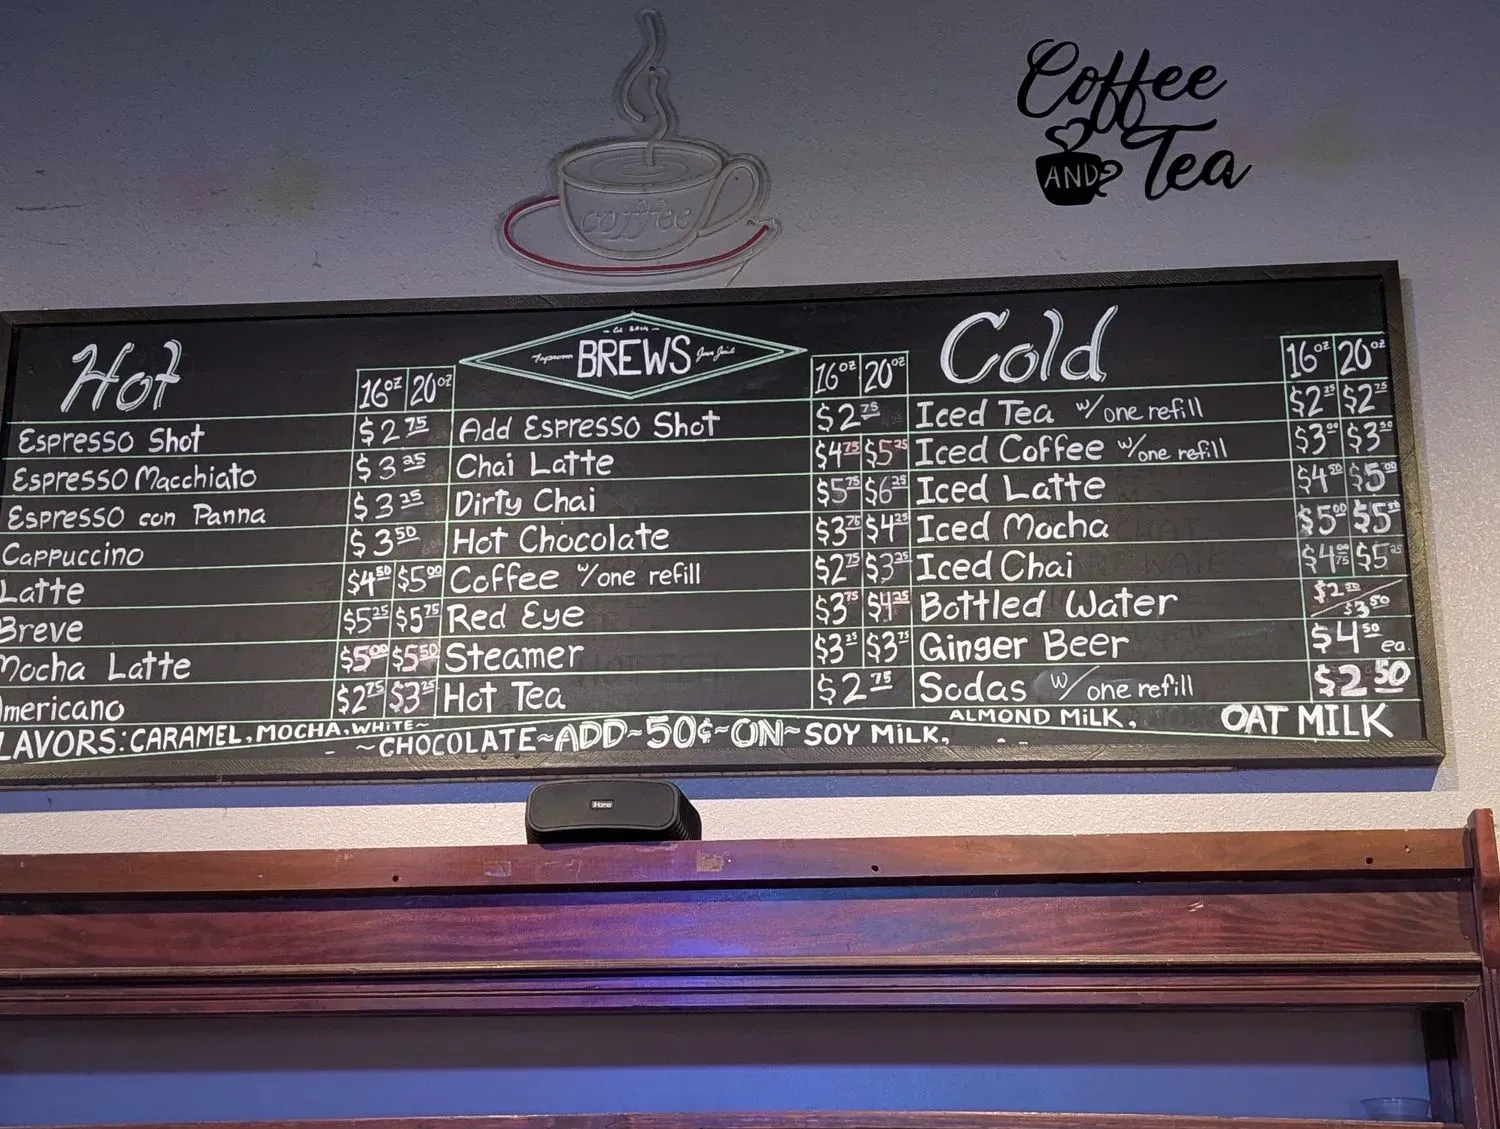 Coffee
AND
Tea
coffee
Hot
16oz 20oz
Espresso Shot $2.75
Espresso Macchiato $3.25
Espresso con Panna $3.25
Cappuccino $3.50
Latte $4.50 $5.00
Breve $5.25 $5.75
Mocha Latte $5.00 $5.50
mericano $2.75 $3.25
BREWS
16oz 20oz
Add Espresso Shot $2.75
Chai Latte $4.75 $5.25
Dirty Chai $5.75 $6.25
Hot Chocolate $3.75 $4.25
Coffee w/one refill $2.75 $3.25
Red Eye $3.75 $4.25
Steamer $3.25 $3.75
Hot Tea $2.75
Cold
16oz 20oz
Iced Tea w/one refill $2.25 $2.75
Iced Coffee w/one refill $3.00 $3.50
Iced Latte $4.50 $5.00
Iced Mocha $5.00 $5.50
Iced Chai $4.75 $5.25
Bottled Water $2.50/$3.50
Ginger Beer $4.50 ea.
Sodas w/one refill $2.50
LAVORS: CARAMEL, MOCHA, WHITE~
~CHOCOLATE~ADD~50¢~ON~SOY MILK, ALMOND MILK, OAT MILK
iHome